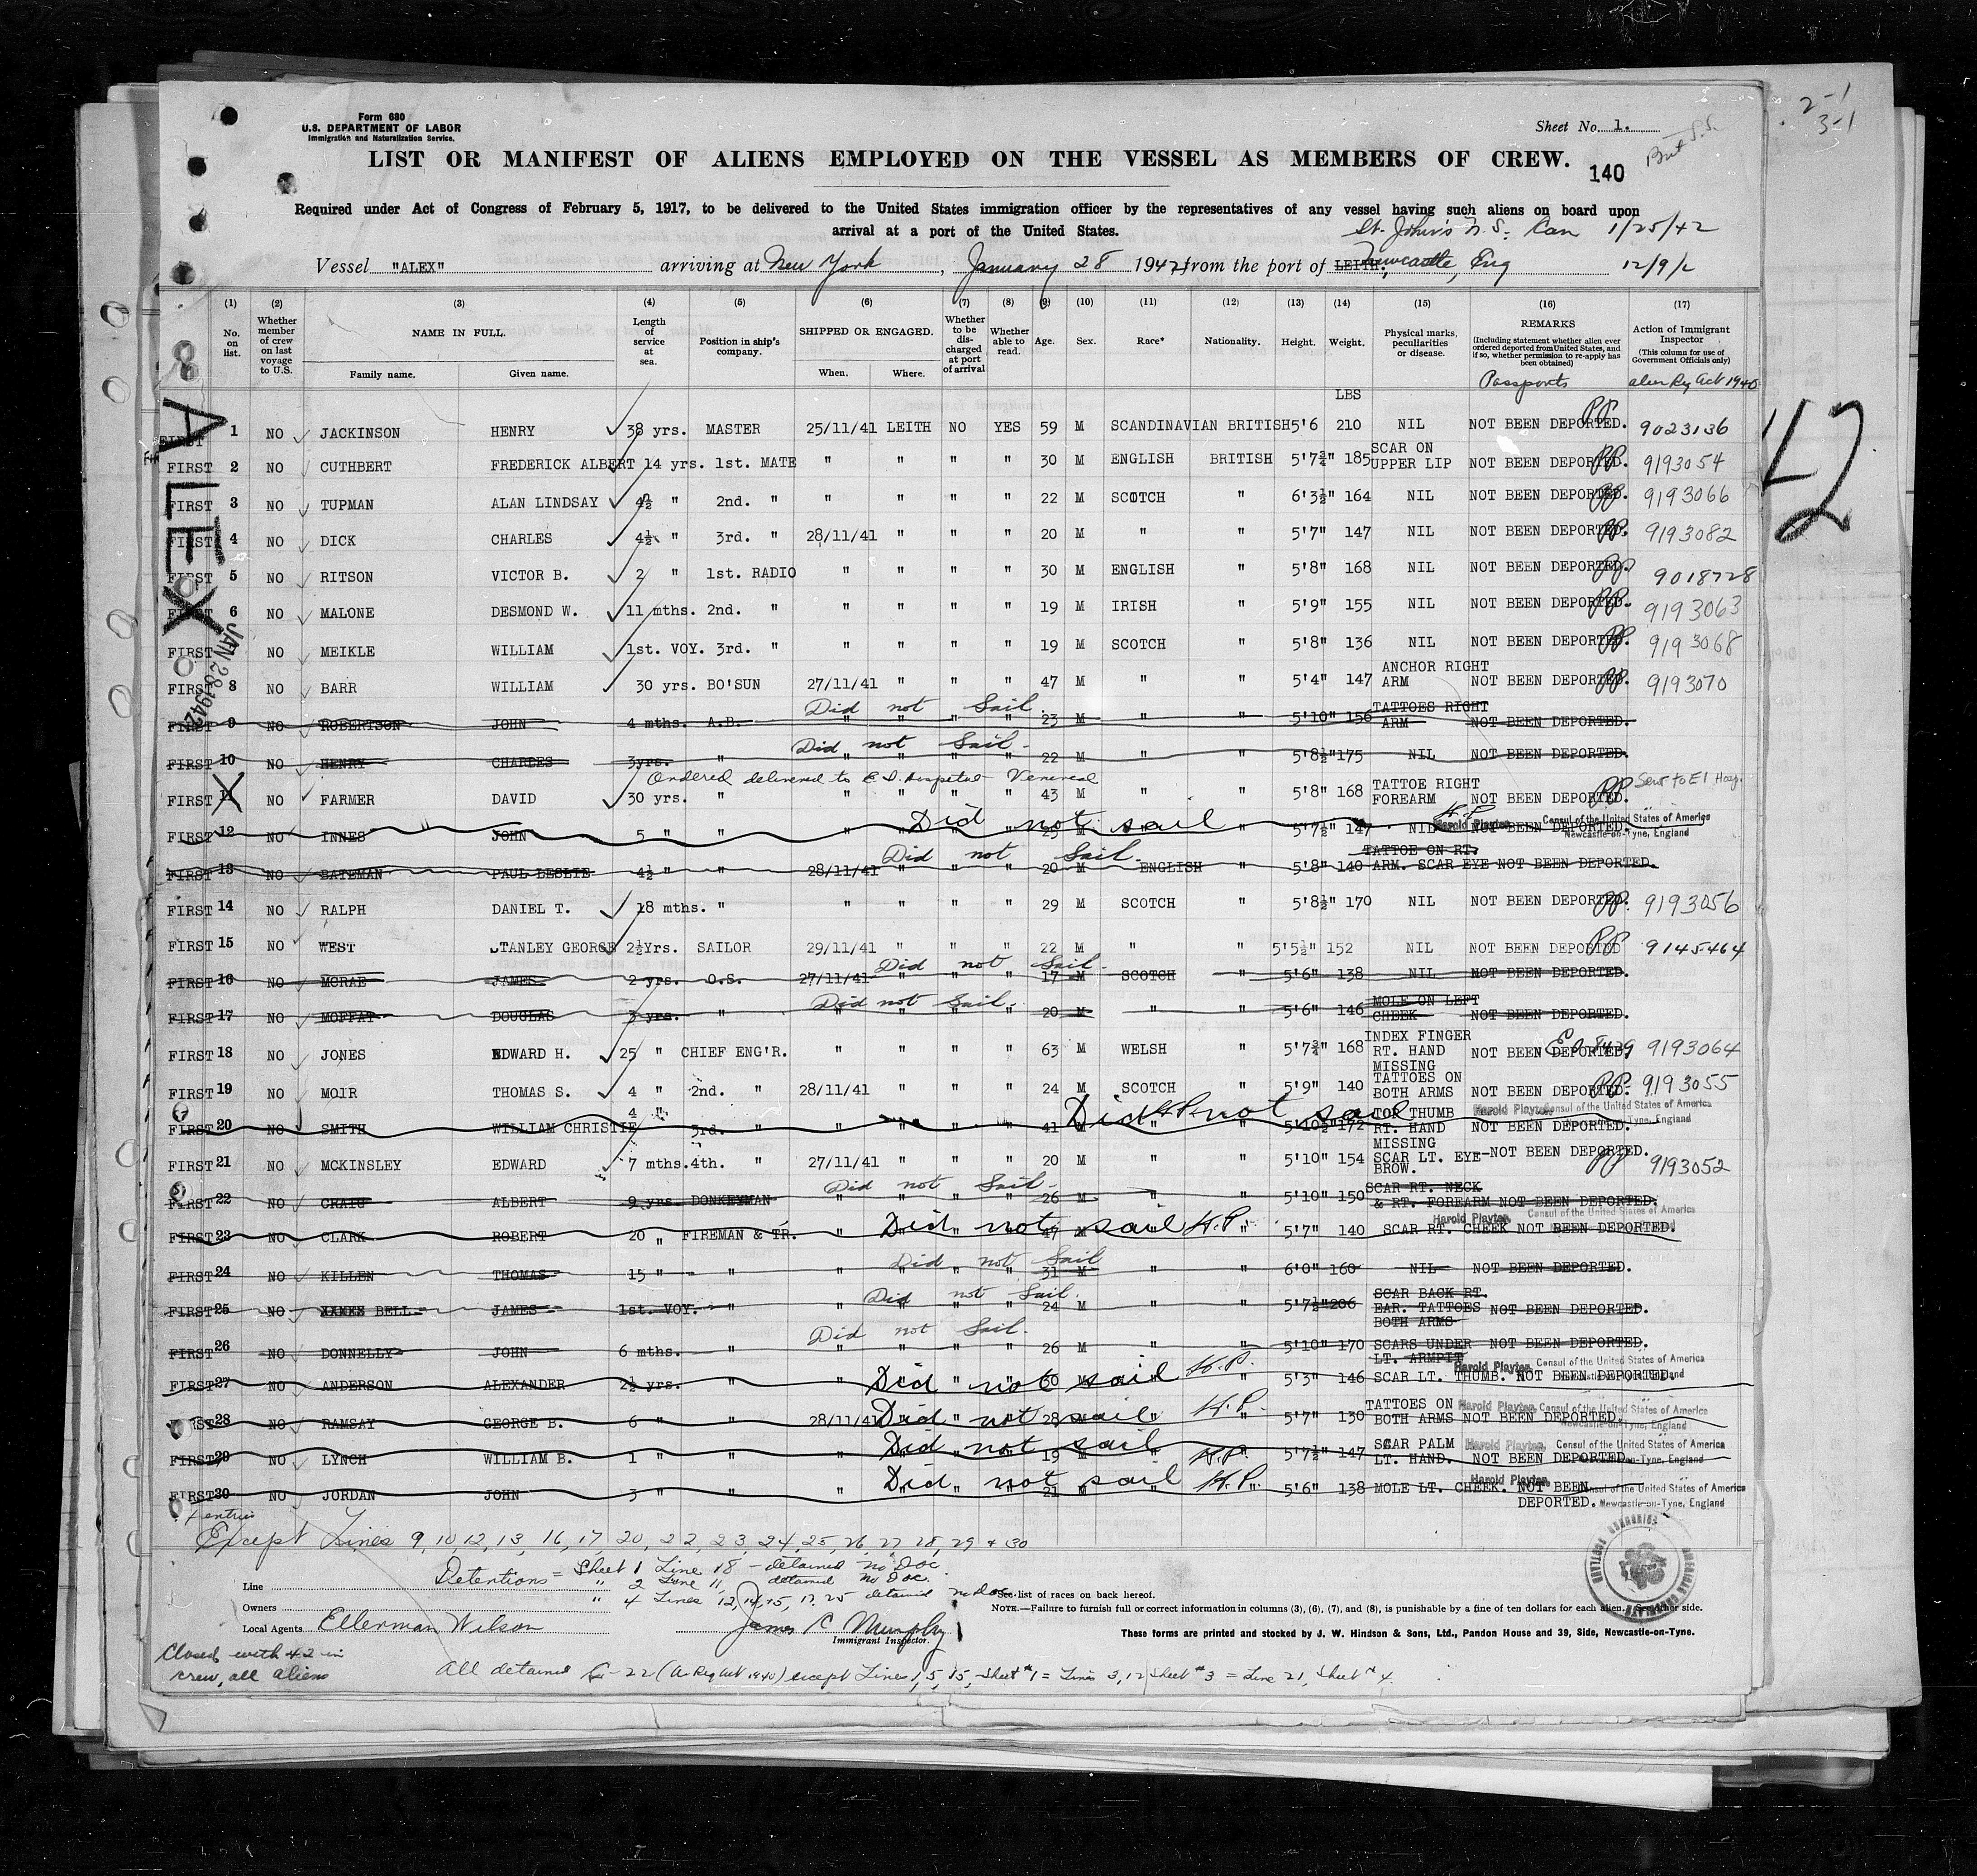 2-1
3-1
Form 680
U.S. DEPARTMENT OF LABOR
Immigration and Naturalization Service.
Sheet No. 1.
Brit S.S.
LIST OR MANIFEST OF ALIENS EMPLOYED ON THE VESSEL AS MEMBERS OF CREW.
140
Required under Act of Congress of February 5, 1917, to be delivered to the United States immigration officer by the representatives of any vessel having such aliens on board upon
arrival at a port of the United States.
St. John's N.S. Can 1/25/42
Vessel "ALEX" arriving at New York, January 28 1942, from the port of LEITH. Newcastle, Eng 12/9/
(1) (2) (3) (4) (5) (6) (7) (8) (9) (10) (11) (12) (13) (14) (15) (16) (17)
No. on list. Whether member of crew on last voyage to U.S. NAME IN FULL. Family name. Given name. Length of service at sea. Position in ship's company. SHIPPED OR ENGAGED. When. Where. Whether to be discharged at port of arrival Whether able to read. Age. Sex. Race* Nationality. Height. Weight. Physical marks, peculiarities or disease. REMARKS (Including statement whether alien ever ordered deported from United States, and if so, whether permission to re-apply has been obtained) Action of Immigrant Inspector (This column for use of Government Officials only)
Passports alien Reg Act 1940
LBS
FIRST 1 NO JACKINSON HENRY 38 yrs. MASTER 25/11/41 LEITH NO YES 59 M SCANDINAVIAN BRITISH 5'6 210 NIL NOT BEEN DEPORTED. PP 9023136
FIRST 2 NO CUTHBERT FREDERICK ALBERT 14 yrs. 1st. MATE " " " " 30 M ENGLISH BRITISH 5'7¾" 185 SCAR ON UPPER LIP NOT BEEN DEPORTED. PP 9193054
FIRST 3 NO TUPMAN ALAN LINDSAY 4½ " 2nd. " " " " " 22 M SCOTCH " 6'3½" 164 NIL NOT BEEN DEPORTED. PP 9193066
FIRST 4 NO DICK CHARLES 4½ " 3rd. " 28/11/41 " " " 20 M " " 5'7" 147 NIL NOT BEEN DEPORTED. PP. 9193082
FIRST 5 NO RITSON VICTOR B. 2 " 1st. RADIO " " " " 30 M ENGLISH " 5'8" 168 NIL NOT BEEN DEPORTED. PP 9018728
FIRST 6 NO MALONE DESMOND W. 11 mths. 2nd. " " " " " 19 M IRISH " 5'9" 155 NIL NOT BEEN DEPORTED. PP. 9193063
FIRST 7 NO MEIKLE WILLIAM 1st. VOY. 3rd. " " " " " 19 M SCOTCH " 5'8" 136 NIL NOT BEEN DEPORTED. PP. 9193068
FIRST 8 NO BARR WILLIAM 30 yrs. BO'SUN 27/11/41 " " " 47 M " " 5'4" 147 ANCHOR RIGHT ARM NOT BEEN DEPORTED. PP. 9193070
FIRST 9 NO ROBERTSON JOHN 4 mths. A.B. Did not Sail. " " " " 23 M " " 5'10" 156 TATTOES RIGHT ARM NOT BEEN DEPORTED.
FIRST 10 NO HENRY CHARLES 3yrs. " Did not Sail. " " " " 22 M " " 5'8½" 175 NIL NOT BEEN DEPORTED.
Ordered delivered to E.I. Hospital Venereal
FIRST 11 NO FARMER DAVID 30 yrs. " " " " " 43 M " " 5'8" 168 TATTOE RIGHT FOREARM NOT BEEN DEPORTED. PP Sent to E I Hosp.
FIRST 12 NO INNES JOHN 5 " " " Did not sail 23 M " " 5'7½" 147 NIL NOT BEEN DEPORTED. H.P. Harold Playter, Consul of the United States of America Newcastle-on-Tyne, England
FIRST 13 NO BATEMAN PAUL LESLIE 4½ " " 28/11/41 Did not Sail. " " " 20 M ENGLISH " 5'8" 140 TATTOE ON RT. ARM. SCAR EYE NOT BEEN DEPORTED.
FIRST 14 NO RALPH DANIEL T. 18 mths. " " " " " 29 M SCOTCH " 5'8½" 170 NIL NOT BEEN DEPORTED. PP. 9193056
FIRST 15 NO WEST STANLEY GEORGE 2½Yrs. SAILOR 29/11/41 " " " 22 M " " 5'5½" 152 NIL NOT BEEN DEPORTED PP 9145464
FIRST 16 NO MCRAE JAMES. 2 yrs. O.S. 27/11/41 Did not Sail. 17 M SCOTCH " 5'6" 138 NIL NOT BEEN DEPORTED.
FIRST 17 NO MOFFAT DOUGLAS 3 yrs. " Did not Sail. " " " " 20 M " " 5'6" 146 MOLE ON LEFT CHEEK NOT BEEN DEPORTED.
FIRST 18 NO JONES EDWARD H. 25 " CHIEF ENG'R. " " " " 63 M WELSH " 5'7¾" 168 INDEX FINGER RT. HAND MISSING NOT BEEN DEPORTED. 9193064
FIRST 19 NO MOIR THOMAS S. 4 " 2nd. " 28/11/41 " " " 24 M SCOTCH " 5'9" 140 TATTOES ON BOTH ARMS NOT BEEN DEPORTED. PP. 9193055
FIRST 20 NO SMITH WILLIAM CHRISTIE 4 " 3rd. " " " " 41 M Did H.P. not sail 5'10½" 172 TOP THUMB RT. HAND MISSING NOT BEEN DEPORTED. Harold Playter, Consul of the United States of America Newcastle-on-Tyne, England
FIRST 21 NO MCKINSLEY EDWARD 7 mths. 4th. " 27/11/41 " " " 20 M " " 5'10" 154 SCAR LT. EYE-BROW. NOT BEEN DEPORTED. PP 9193052
FIRST 22 NO CRAIG ALBERT 9 yrs. DONKEYMAN Did not Sail. " " " " 26 M " " 5'10" 150 SCAR RT. NECK & RT. FOREARM NOT BEEN DEPORTED.
FIRST 23 NO CLARK ROBERT 20 " FIREMAN & TR. " Did not sail H.P. 47 M " " 5'7" 140 SCAR RT. CHEEK NOT BEEN DEPORTED. Harold Playter, Consul of the United States of America
FIRST 24 NO KILLEN THOMAS 15 " " Did not Sail " " " " 31 M " " 6'0" 160 NIL NOT BEEN DEPORTED.
FIRST 25 NO BELL JAMES 1st. VOY. " Did not Sail. " " " " 24 M " " 5'7½" 206 SCAR BACK RT. EAR. TATTOES BOTH ARMS NOT BEEN DEPORTED.
FIRST 26 NO DONNELLY JOHN 6 mths. " Did not Sail. " " " " 26 M " " 5'10" 170 SCARS UNDER LT. ARMPIT NOT BEEN DEPORTED.
FIRST 27 NO ANDERSON ALEXANDER 2½ yrs. " " Did not sail H.P. " 5'3" 146 SCAR LT. THUMB. NOT BEEN DEPORTED. Harold Playter, Consul of the United States of America
FIRST 28 NO RAMSAY GEORGE B. 6 " " 28/11/41 Did not sail 28 H.P. " 5'7" 130 TATTOES ON BOTH ARMS NOT BEEN DEPORTED. Harold Playter, Consul of the United States of America Newcastle-on-Tyne, England
FIRST 29 NO LYNCH WILLIAM B. 1 " " " Did not sail 19 H.P. " 5'7½" 147 SCAR PALM LT. HAND. NOT BEEN DEPORTED. Harold Playter, Consul of the United States of America Newcastle-on-Tyne, England
FIRST 30 NO JORDAN JOHN 3 " " " Did not sail 21 H.P. " 5'6" 138 MOLE LT. CHEEK. NOT BEEN DEPORTED. Harold Playter, Consul of the United States of America Newcastle-on-Tyne, England
ALEX
JAN 28 1942
42
Except Lines 9, 10, 12, 13, 16, 17, 20, 22, 23, 24, 25, 26, 27, 28, 29 & 30
Detentions = Sheet 1 Line 18 - detained no Doc.
" 2 Line 11, detained No Doc.
" 4 Lines 12, 14, 15, 17, 25 detained no Doc.
Line
Owners
Local Agents Ellerman Wilson
James C Murphy
Immigrant Inspector.
*See list of races on back hereof.
NOTE.—Failure to furnish full or correct information in columns (3), (6), (7), and (8), is punishable by a fine of ten dollars for each alien. See other side.
These forms are printed and stocked by J. W. Hindson & Sons, Ltd., Pandon House and 39, Side, Newcastle-on-Tyne.
Closed with 42 in
crew, all aliens
All detained G-22 (A Reg Act 1940) except Lines 1, 5, 15, Sheet #1 = Lines 3, 12 Sheet #3 = Line 21, Sheet #4.